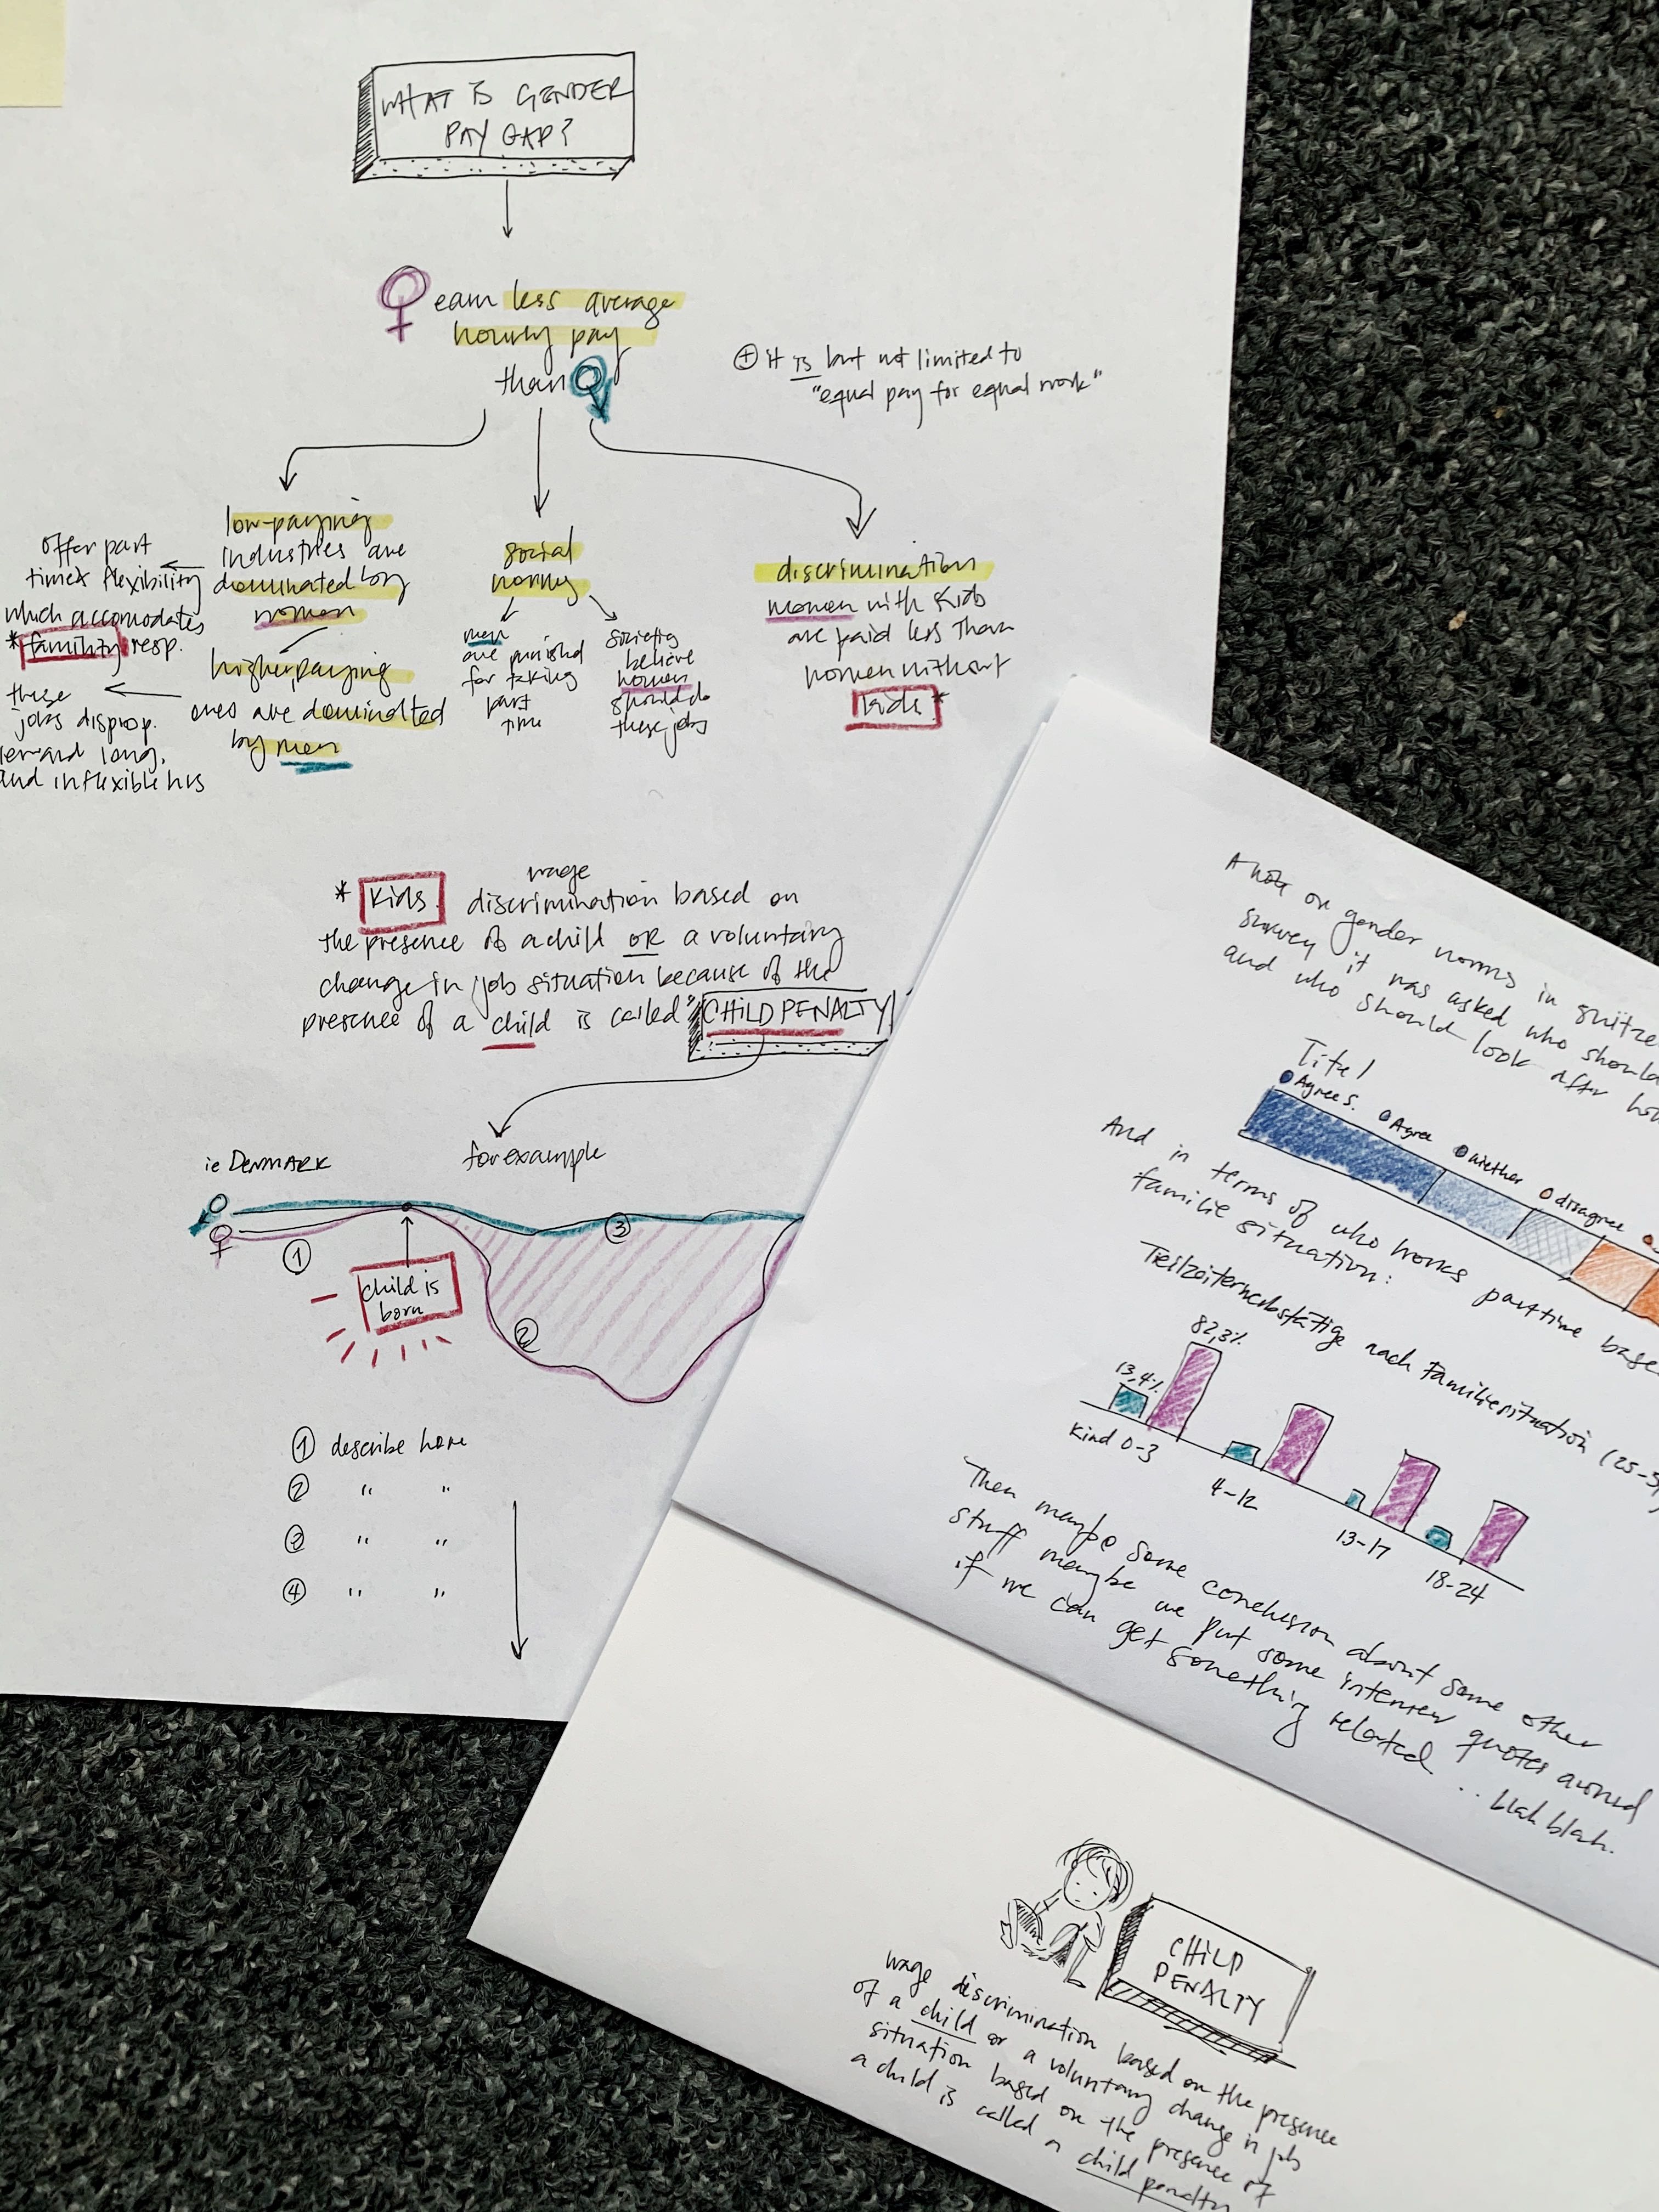 WHAT IS GENDER
PAY GAP?
earn less average
hourly pay
than
+ it is but not limited to
"equal pay for equal work"
offer part
time & flexibility
which accomodates
* family resp.
these
jobs disprop.
reward long,
and inflexible hrs
low-paying
industries are
dominated by
women
higher paying
ones are dominated
by men
social
norms
men
are punished
for taking
part
time
society
believe
women
should do
these jobs
discrimination
women with kids
are paid less than
women without
kids *
wage
* kids. discrimination based on
the presence of a child OR a voluntary
change in job situation because of the
presence of a child is called "CHILD PENALTY"
for example
ie DENMARK
1
2
3
child is
born
1 describe here
2 " "
3 " "
4 " "
A note on gender norms in
survey it was asked who should
and who should look after
Titel
Agree s.
Agree
niether
disagree
And in terms of who works partime
familie situation:
Teilzeiterwerbstätige nach Familiensituation
13,4%
82,3%
Kind 0-3
4-12
13-17
18-24
Then maybe some conclusion about some other
stuff maybe we put some interview quotes around
if we can get something related .. blah blah.
CHILD
PENALTY
wage discrimination based on the presence
of a child or a voluntary change in job
situation based on the presence of
a child is called a child penalty